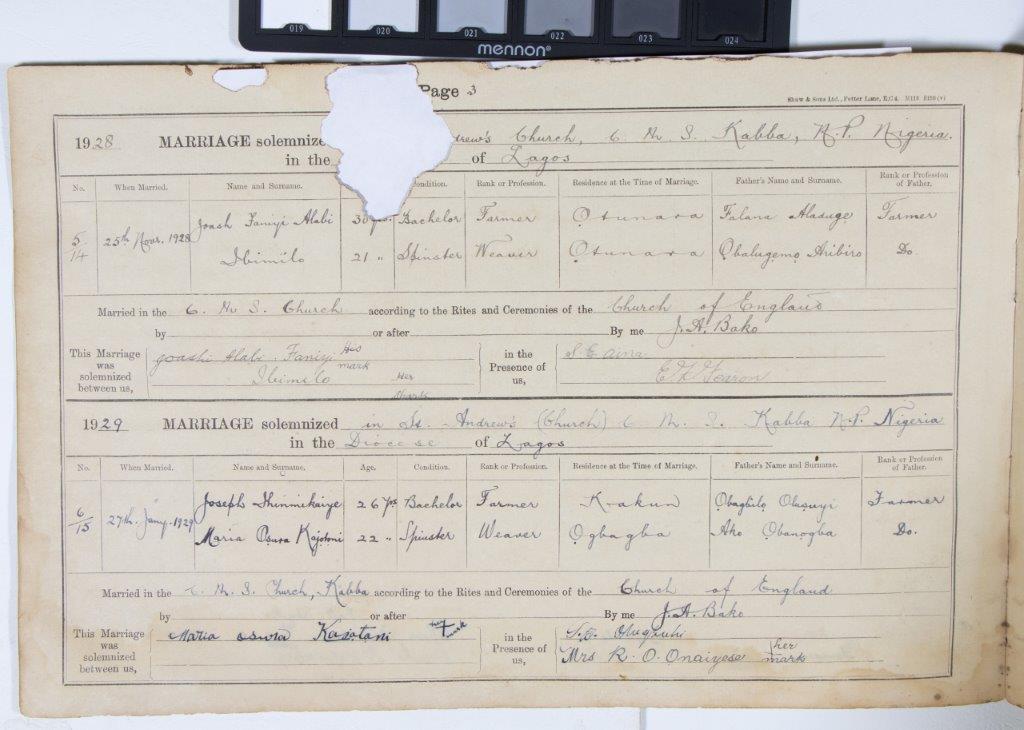 019 020 021 022 023 024
mennon®
Page 3
Shaw & Sons Ltd., Fetter Lane, E.C.4.
1928 MARRIAGE solemnized drew's Church, C. M. S. Kabba, N.P. Nigeria.
in the of Lagos
No. When Married. Name and Surname. Condition. Rank or Profession. Residence at the Time of Marriage. Father's Name and Surname. Rank or Profession of Father.
5/14 25th Novr. 1928 Joash Faniyi Alabi 30 yrs. Bachelor Farmer Ọtunara Falana Aladugẹ Farmer
Ibimilo 21 " Spinster Weaver Ọtunara Ọbalugẹmọ Aribiro Do.
Married in the C. M. S. Church according to the Rites and Ceremonies of the Church of England
by or after By me J. A. Bako
This Marriage was solemnized between us, Joash Alabi Faniyi His mark in the Presence of us, S. E. Aina
Ibimilo Her mark E. K. Fearon
1929 MARRIAGE solemnized in St. Andrew's (Church) C. M. S. Kabba N.P. Nigeria
in the Diocese of Lagos
No. When Married. Name and Surname. Age. Condition. Rank or Profession. Residence at the Time of Marriage. Father's Name and Surname. Rank or Profession of Father.
6/15 27th. Jany. 1929 Joseph 26 yrs Bachelor Farmer Kakun Ọbagbilọ Olusuyi Farmer
Maria Osuwa Kajotoni 22 " Spinster Weaver Ọgbagba Ako Ọbanogba Do.
Married in the C. M. S. Church, Kabba according to the Rites and Ceremonies of the Church of England
by or after By me J. A. Bako
This Marriage was solemnized between us, Maria osuwa Kajotani her mark in the Presence of us,
Mrs R. O. Onaiyese her mark